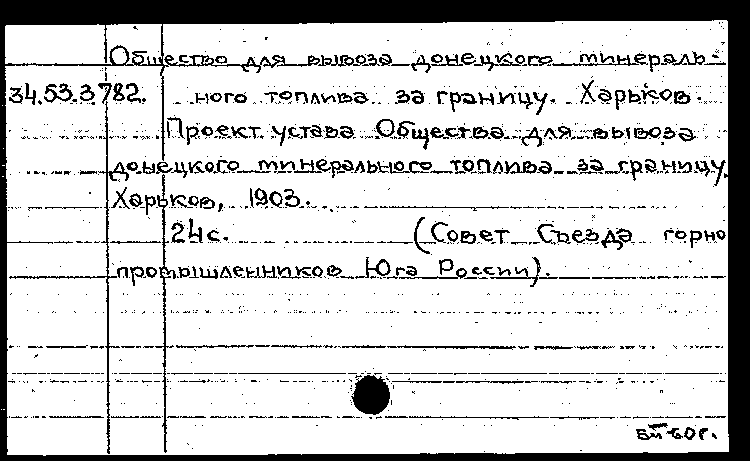 Общество для вывоза донецкого минераль-
34.53.3.782. ного топлива за границу. Харьков.
Проект устава Общества для вывоза
донецкого минерального топлива за границу
Харьков, 1903.
24с. (Совет Съезда горно
промышленников Юга России).